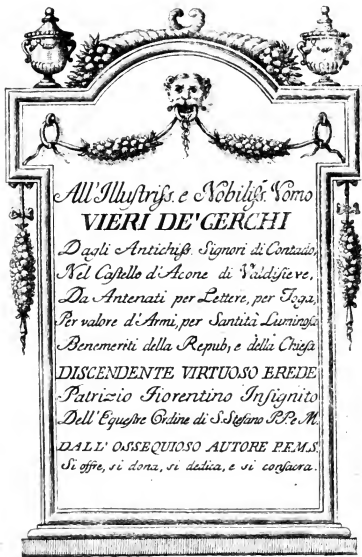 All'Illustriſs. e Nobiliſs. Vomo
VIERI DE' CERCHI
Dagli Antichiſs. Signori di Contado,
Nel Caſtello d'Acone di Valdiſieve,
Da Antenati per Lettere, per Toga,
Per valore d'Armi, per Santità Luminoſo
Benemeriti della Repub, e della Chieſa
DISCENDENTE VIRTUOSO EREDE
Patrizio Fiorentino Inſignito
Dell'Equeſtre Ordine di S. Stefano P.P. e M.
DALL' OSSEQUIOSO AUTORE P.F.M.S.
Si offre, si dona, si dedica, e si conſacra.